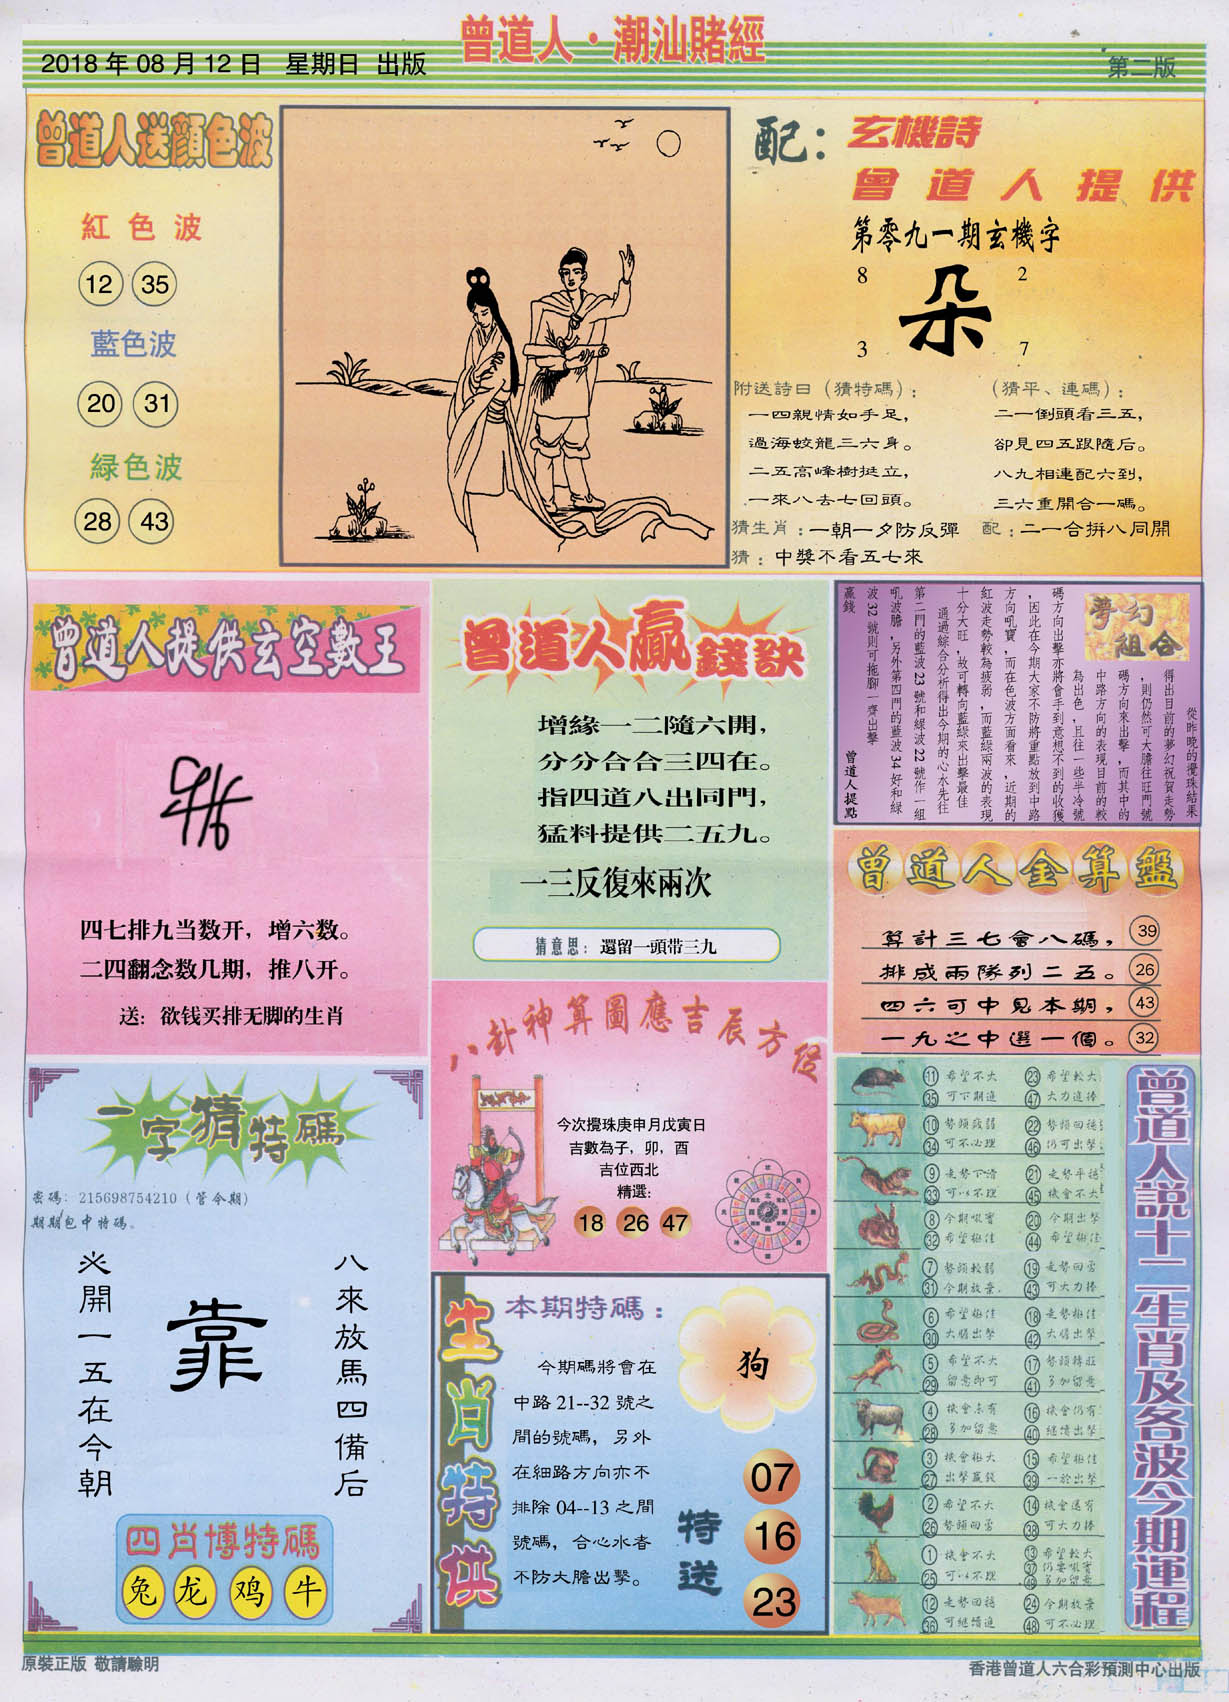 曾道人·潮汕賭經
2018 年 08 月 12 日 星期日 出版
第二版
曾道人送顔色波
紅色波
12 35
藍色波
20 31
緑色波
28 43
配：玄機詩
曾道人提供
第零九一期玄機字
8 2
朵
3 7
附送詩曰（猜特碼）：
一四親情如手足，
過海蛟龍三六身。
二五高峰樹挺立，
一來八去七回頭。
（猜平、連碼）：
二一倒頭看三五，
卻見四五跟隨后。
八九相連配六到，
三六重開合一碼。
猜生肖：一朝一夕防反彈
配：二一合拼八同開
猜：中獎不看五七來
曾道人提供玄空數王
四七排九当数开，增六数。
二四翻念数几期，推八开。
送：欲钱买排无脚的生肖
曾道人贏錢訣
增緣一二隨六開，
分分合合三四在。
指四道八出同門，
猛料提供二五九。
一三反復來兩次
猜意思：還留一頭带三九
夢幻組合
從昨晚的攪珠結果
得出目前的夢幻祝賀走勢
，則仍然可大膽往旺門號
碼方向來出擊，而其中的
中路方向的表現目前的較
為出色，且往一些半冷號
碼方向出擊亦將會手到意想不到的收獲
，因此在今期大家不防將重點放到中路
方向吼寶，而在色波方面看來，近期的
紅波走勢較為疲弱，而藍綠兩波的表現
十分大旺，故可轉向藍綠來出擊最佳
通過綜合分析得出今期的心水先往
第二門的藍波 23 號和綠波 22 號作一組
吼波膽，另外第四門的藍波 34 好和綠
波 32 號則可拖腳一齊出擊
贏錢
曾道人提點
曾道人金算盤
算計三七會八碼， 39
排成兩隊列二五。 26
四六可中見本期， 43
一九之中選一個。 32
八卦神算圖應吉辰方位
今次攪珠庚申月戊寅日
吉數為子，卯，酉
吉位西北
精選：
18 26 47
一字猜特碼
密碼：215698754210（管令期）
期期包中特碼。
八來放馬四備后
靠
必開一五在今朝
四肖博特碼
兔 龙 鸡 牛
生肖特供
本期特碼：
狗
今期碼將會在
中路 21--32 號之
間的號碼，另外
在細路方向亦不
排除 04--13 之間
號碼，合心水者
不防大膽出擊。
特送
07
16
23
曾道人說十二生肖及各波今期運程
11 希望不大 23 希望較大
35 可下期進 47 大力追捧
10 勢頭疲弱 22 勢頭回穩
34 可不必理 46 仍可出擊
9 走勢下滑 21 走勢平穩
33 可以不理 45 機會不大
8 今期吸寶 20 今期出擊
32 希望極佳 44 希望極佳
7 勢頭較弱 19 走勢回勇
31 今期放棄 43 可大力捧
6 希望極佳 18 走勢極佳
30 大膽出擊 42 大膽出擊
5 希望不大 17 勢頭轉旺
29 留意即可 41 多加留意
4 機會未有 16 機會仍有
28 多加留意 40 繼續出擊
3 機會極大 15 希望極佳
27 出擊贏錢 39 一於出擊
2 希望不大 14 機會還有
26 勢頭回勇 38 可大力捧
1 機會不大 13 希望較大
25 可以不理 37 仍要吸寶
49 多加留意
12 走勢回穩 24 今期放棄
36 可繼續進 48 可不必理
原裝正版 敬請驗明
香港曾道人六合彩預測中心出版